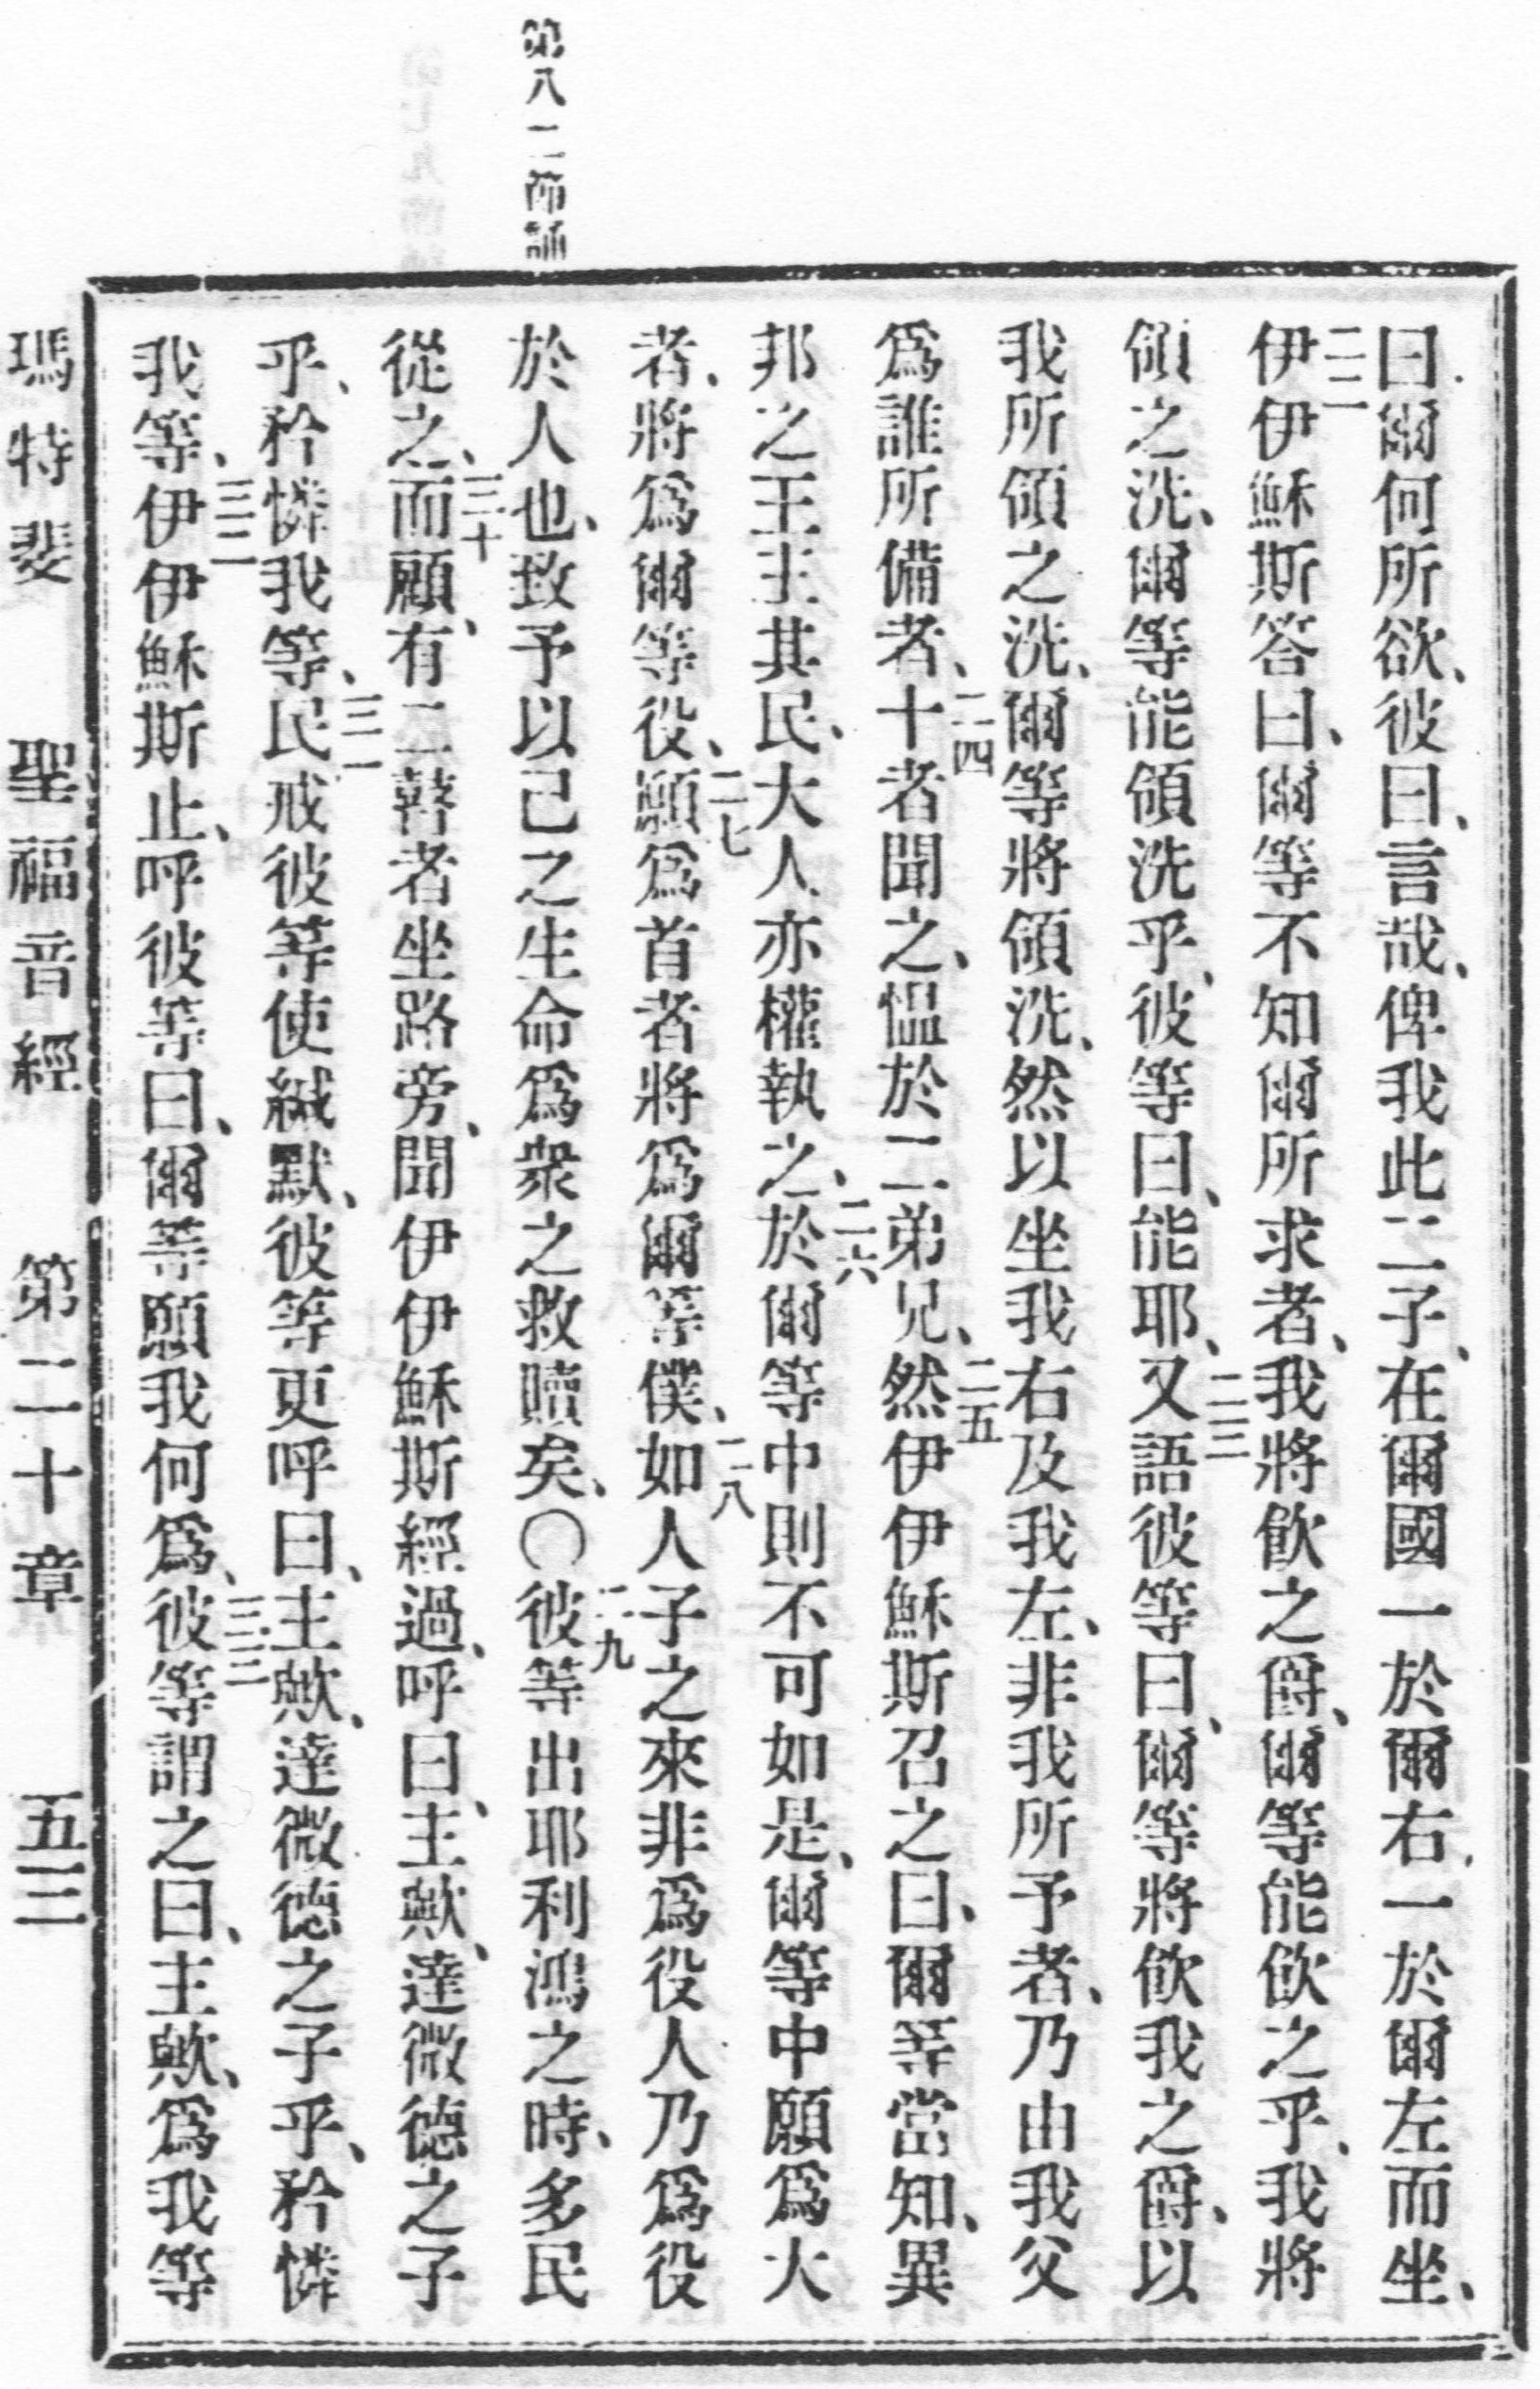 第八一節誦
曰爾何所欲、彼曰、言哉、俾我此二子、在爾國一於爾右、一於爾左而坐、
二二
伊伊穌斯答曰、爾等不知爾所求者、我將飲之爵、爾等能飲之乎、我將
領之洗、爾等能領洗乎、彼等曰、能耶、又語彼等曰、爾等將飲我之爵、以
二三
我所領之洗、爾等將領洗、然以坐我右及我左、非我所予者、乃由我父
爲誰所備者、十者聞之、慍於二弟兄、然伊伊穌斯召之曰、爾等當知、異
二四 二五
邦之王主其民、大人亦權執之、於爾等中則不可如是、爾等中願爲大
二六
者、將爲爾等役、願爲首者將爲爾等僕、如人子之來非爲役人乃爲役
二七 二八
於人也、致予以己之生命爲衆之救贖矣、○彼等出耶利鴻之時、多民
二九
從之、而顧、有二瞽者坐路旁、聞伊伊穌斯經過、呼曰、主歟、達微德之子
三十
乎、矜憐我等、民戒彼等使緘默、彼等更呼曰、主歟、達微德之子乎、矜憐
三一
我等、伊伊穌斯止、呼彼等曰、爾等願我何爲、彼等謂之曰、主歟、爲我等
三二 三三
瑪特斐 聖福音經 第二十章 五三